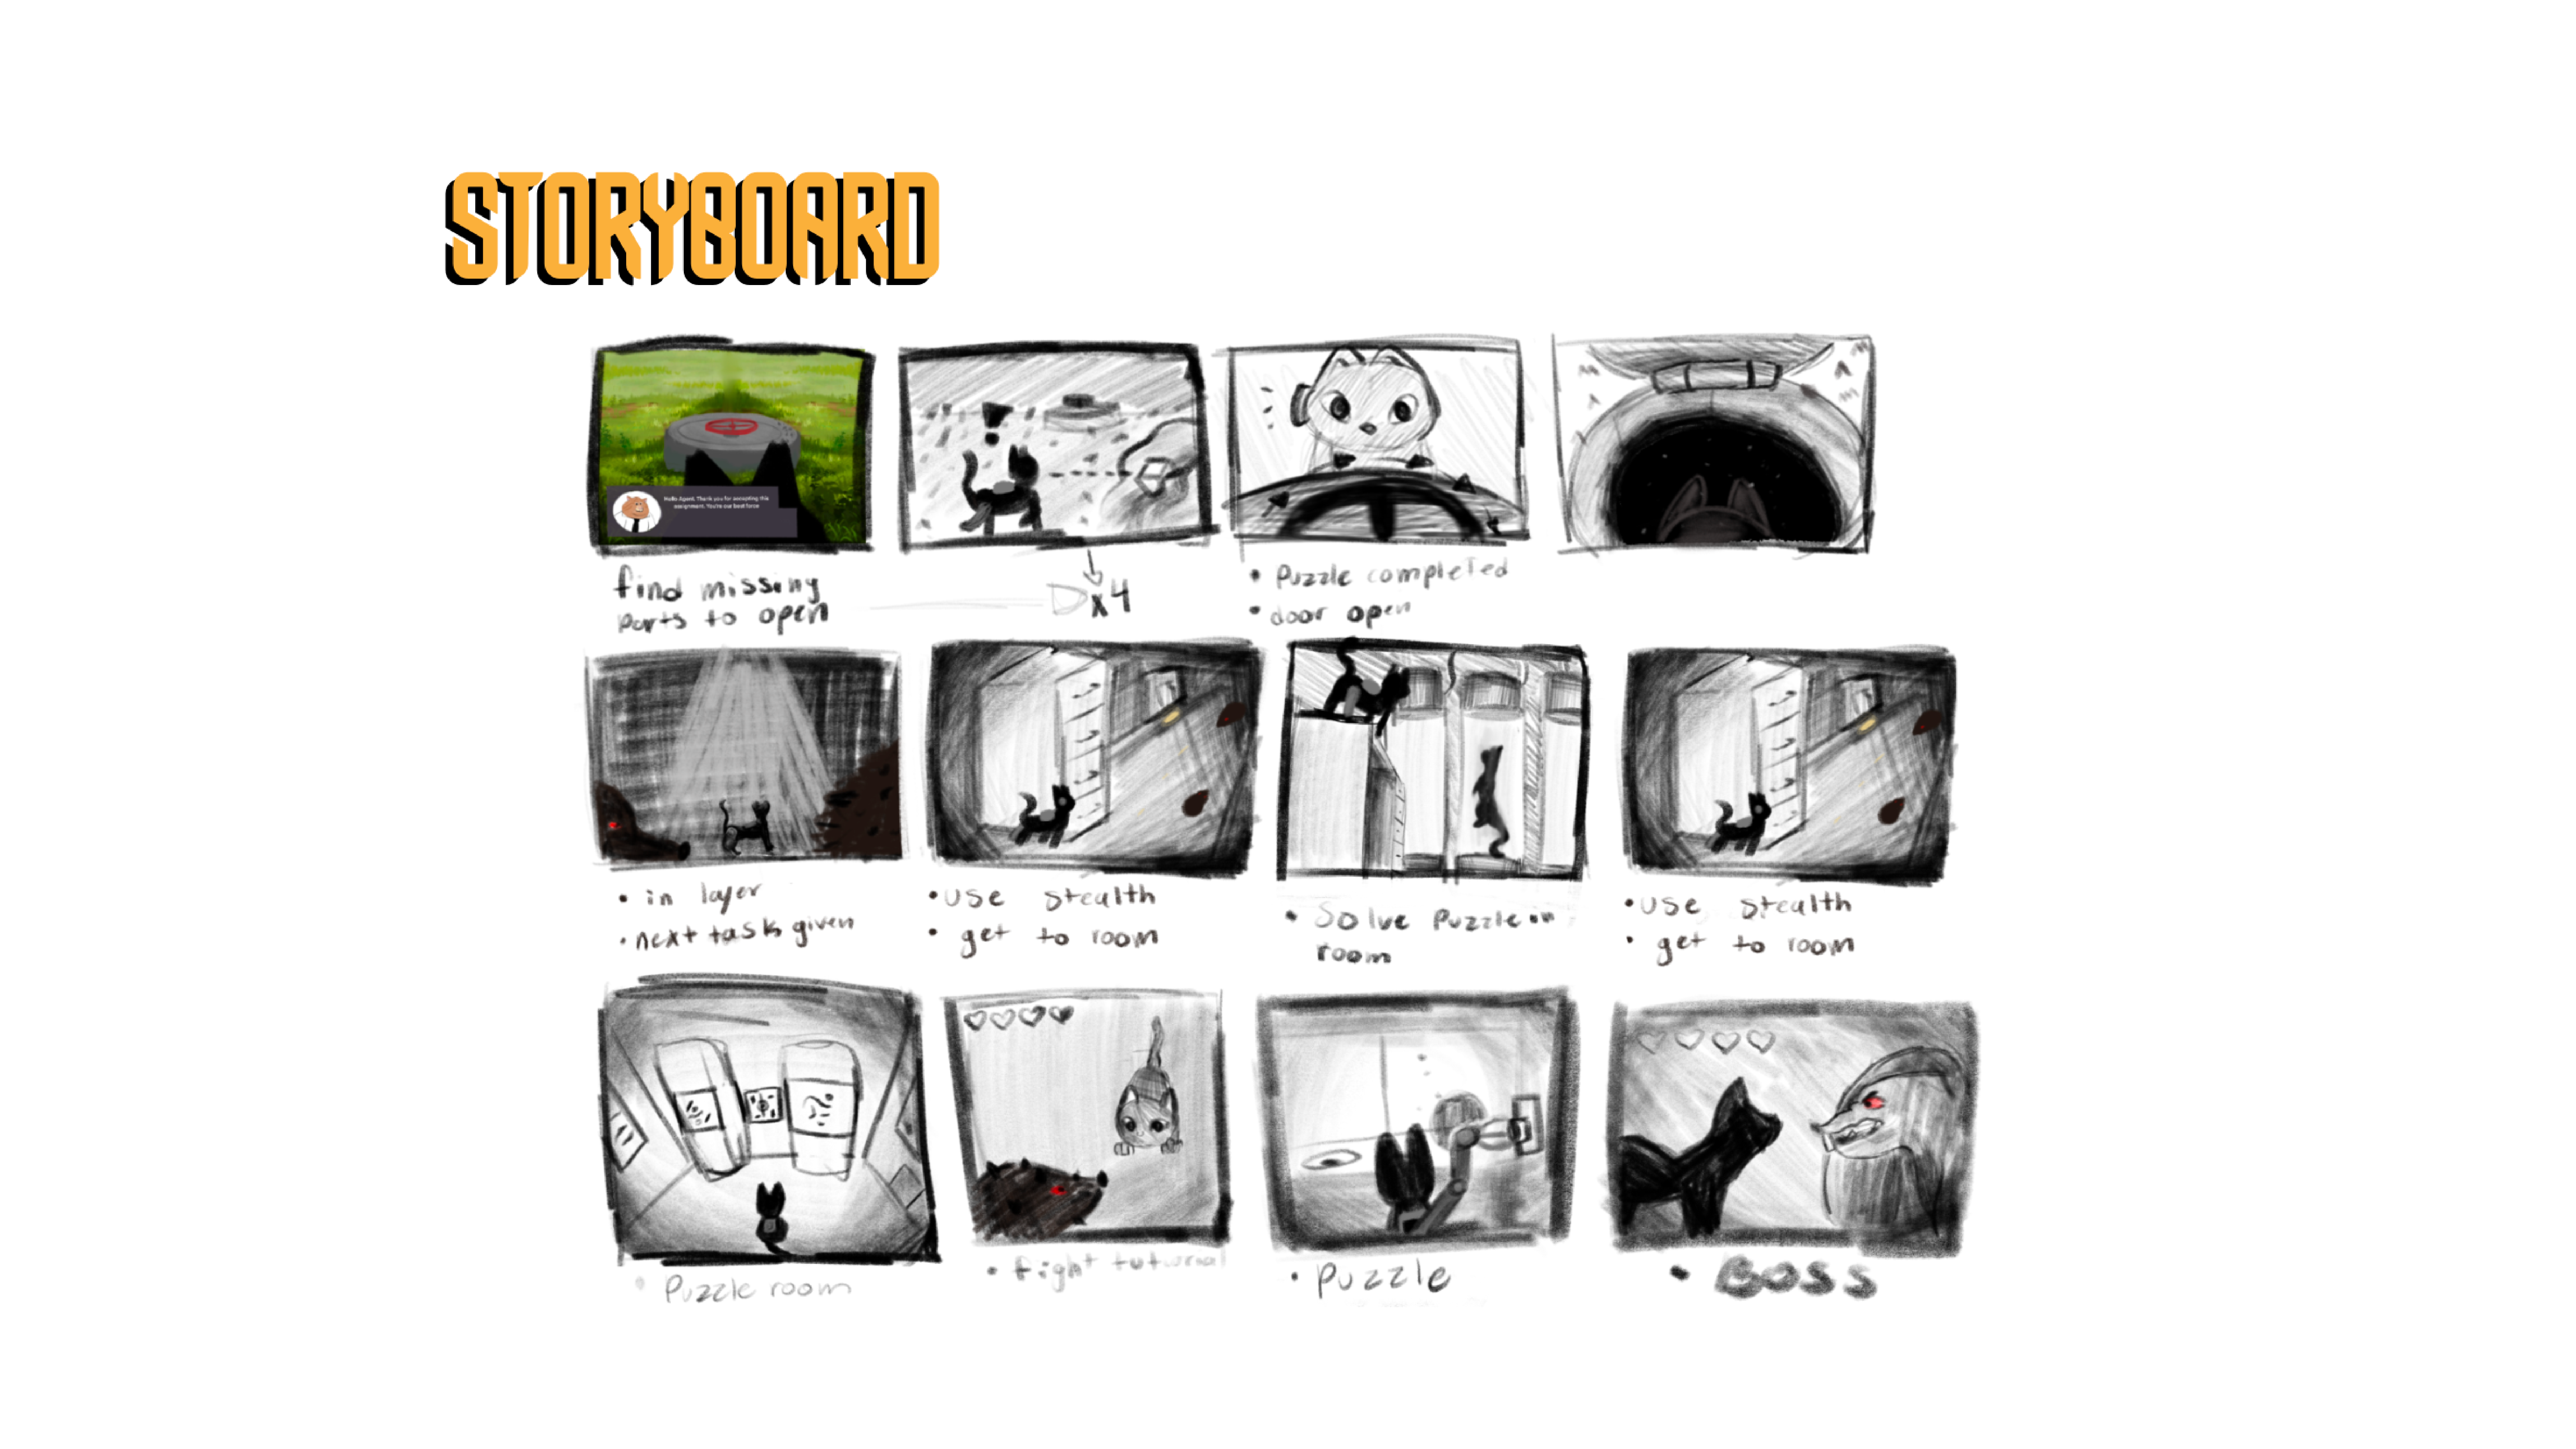 STORYBOARD
Hello Agent. Thank you for accepting this
assignment. You're our best force
find missing
parts to open
x4
• Puzzle completed
• door open
• in layer
• next task given
• use stealth
• get to room
• Solve Puzzle in
room
• use stealth
• get to room
• Puzzle room
• fight tutorial
• Puzzle
• Boss